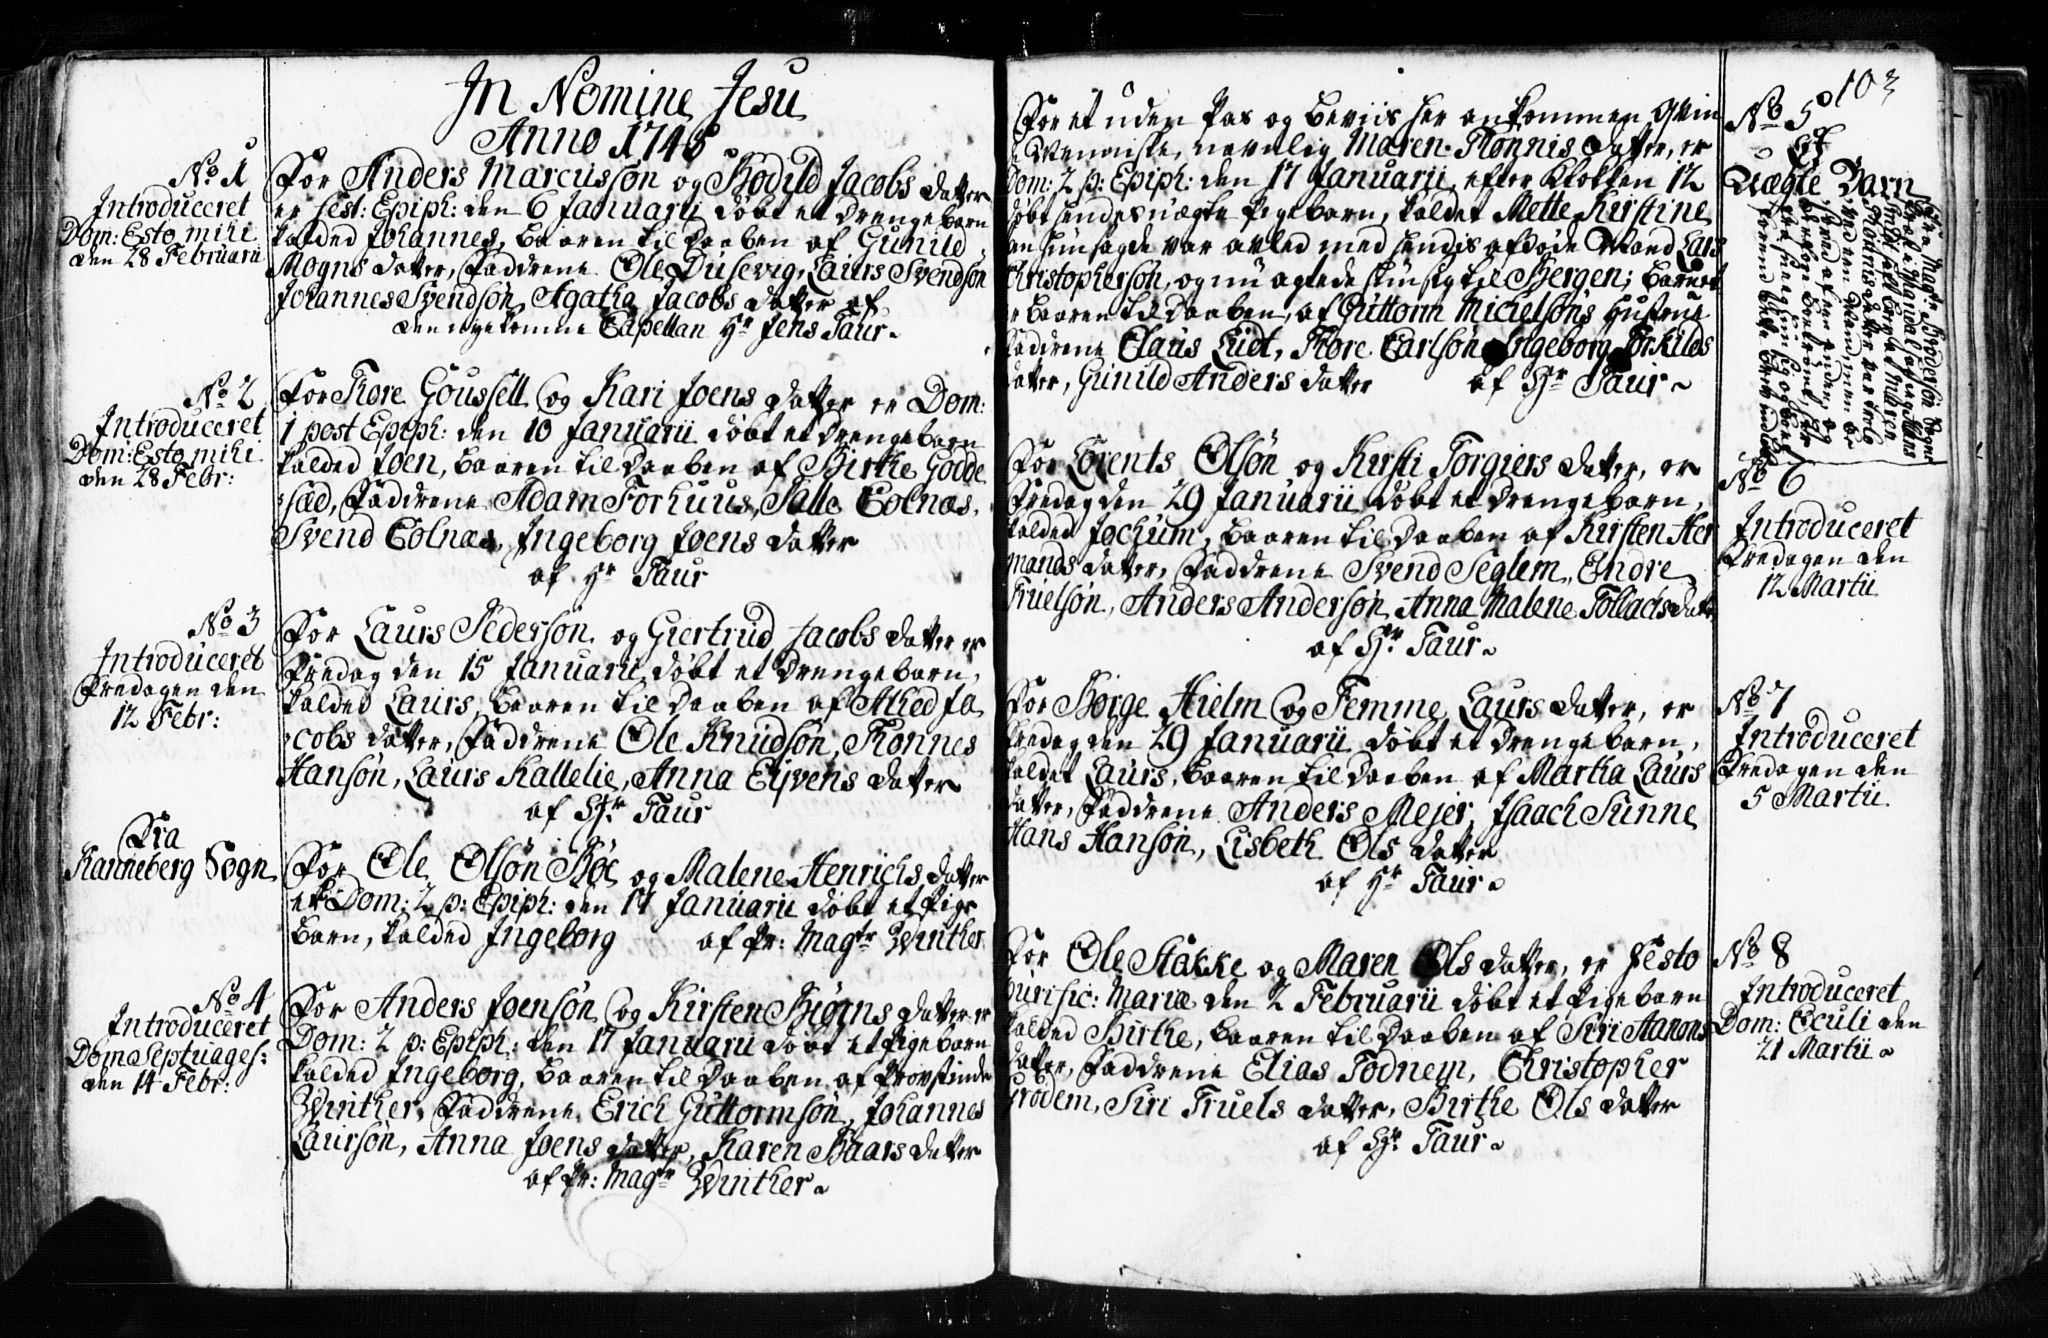 In Nomine Jesu
Anno 1745
No 1
Introduceret
Dom: Esto mihi
den 28 Februarii
For Anders Marcussøn og Bodild Jacobs datter
er Fest: Epiph: den 6 Januarii døbt et drengebarn
kalded Johannes, baaren til daaben af Gunild
Mogns datter, Faddrene Ole Dusevig, Laurs Svendsøn
Johannes Svendsøn, Agatha Jacobs datter af
den Capellan Hr Jens Taur
No 2
Introduceret
Dom: Esto mihi
den 28 Febr:
For Thore Goussell og Kari Joens datter er Dom:
1 post Epiph: den 10 Januarii døbt et drengebarn
kalded Joen, baaren til daaben af Birthe Godde
sæd, Faddrene Adam Forhuus, Salle Eolnæs,
Svend Eolnæs, Ingeborg Joens datter
af Hr Taur
No 3
Introduceret
Fredagen den
12 Febr:
For Laurs Pedersøn og Giertrud Jacobs datter er
Fredag den 15 Januarii døbt et drengebarn,
kalded Laurs, baaren til daaben af Alhed Ja
cobs datter, Faddrene Ole Knudsøn, Thønnes
Hansøn, Laurs Kallelie, Anna Ejvens datter
af Hr Taur
Fra
Ranneberg Sogn
For Ole Olsøn Bøe og Malene Henrichs datter
er Dom: 2 p: Epiph: den 17 Januarii døbt et Pige
barn, kalded Ingeborg af Pr: Magtr Winther
No 4
Introduceret
Dom Septuages:
den 14 Febr:
For Anders Joensøn og Kirsten Biørns datter er
Dom: 2 p: Epiph: den 17 Januarii døbt et Pigebarn
kalded Ingeborg, baaren til daaben af Provstinde
Winther, Faddrene Erich Guttormsøn, Johannes
Laursøn, Anna Joens datter, Karen Baars datter
af Pr: Magtr Winther
103
For et uden Pas og beviis her ankommen Qvin
navnlig Maren Thønnis datter, er
Dom: 2 p: Epiph: den 17 Januarii efter Klokken 12
døbt hendes uægte Pigebarn, kaldet Mette Kirstine
hun sagde var avled med hendis afdøde Mand Lars
Christophersøn, og nu agtede hun sig til Bergen; barnet
er baaren til daaben af Guttorm Michelsøns Hustrue
Faddrene Claus Lüdt, Thore Carlsøn Ingeborg Torkilds
datter, Gunild Anders datter af Hr Taur
No 5
Et
Uægte Barn
For Lorents Olsøn og Kirsti Torgiers datter, er
Fredag den 29 Januarii døbt et drengebarn,
kalded Jochum, baaren til daaben af Kirsten Her
mands datter, Faddrene Svend Seglem, Endre
Truelsøn, Anders Andersøn, Anna Malene Tollachs datter
af Hr Taur
No 6
Introduceret
Fredagen den
12 Martii
For Børge Hielm og Femme Laurs datter, er
Fredag den 29 Januarii døbt et drengebarn,
kaldet Laurs, baaren til daaben af Martha Laurs
datter, Faddrene Anders Mejer, Isaach Sunne
Hans Hansøn, Lisbeth Ols datter
af Hr Taur
No 7
Introduceret
Fredagen den
5 Martii
For Ole Stakke og Maren Ols datter, er Festo
Purific: Mariæ den 2 Februarii døbt et Pigebarn
kalded Birthe, baaren til daaben af Siri Aanons
datter, Faddrene Elias Todnem, Christopher
Grødem, Siri Truels datter, Birthe Ols datter
af Hr Taur
No 8
Introduceret
Dom: Oculi den
21 Martii